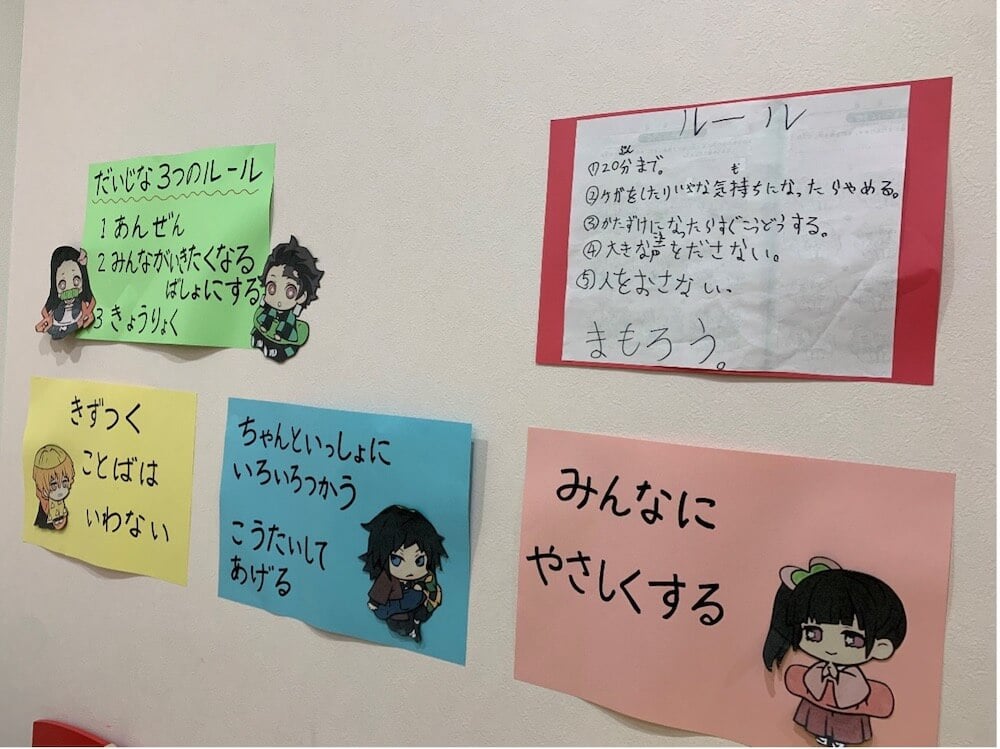 だいじな3つのルール
1 あんぜん
2 みんながいきたくなる
ばしょにする
3 きょうりょく
ルール
①20分まで。
②ケガをしたりいやな気持ちになったらやめる。
③かたずけになったらすぐこうどうする。
④大きな声をださない。
⑤人をおさない。
まもろう。
きずつく
ことばは
いわない
ちゃんといっしょに
いろいろつかう
こうたいして
あげる
みんなに
やさしくする